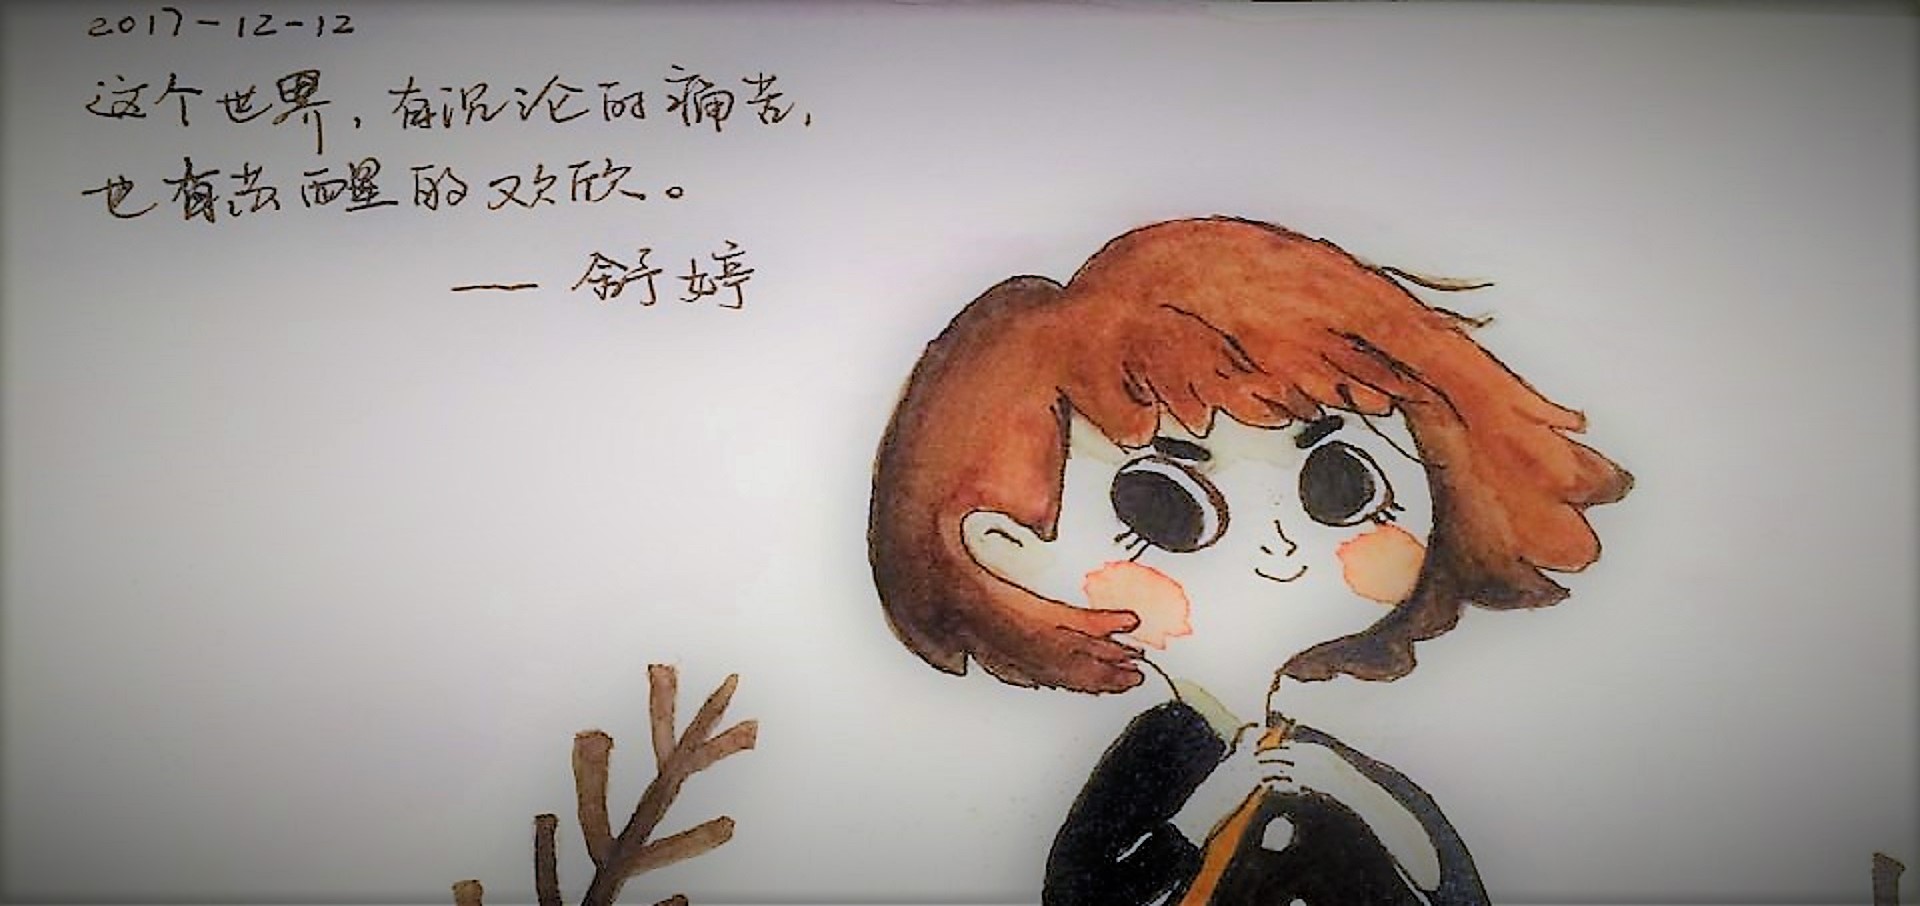 2017-12-12
这个世界，有沉沦的痛苦，
也有苏醒的欢欣。
— 舒婷